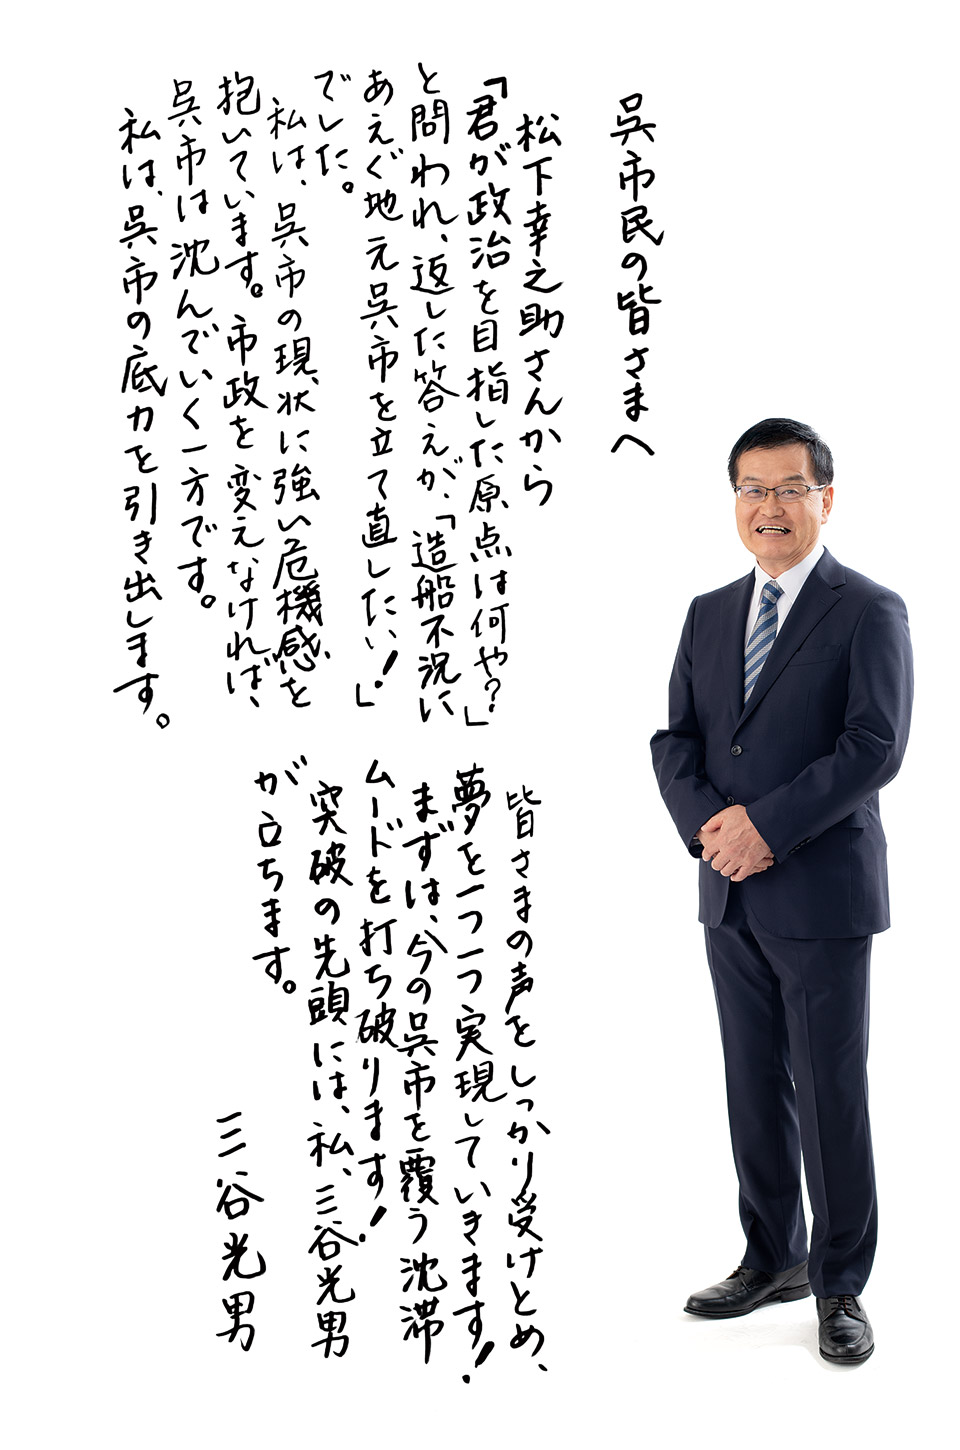 呉市民の皆さまへ
松下幸之助さんから
「君が政治を目指した原点は何や?」
と問われ、返した答えが、「造船不況に
あえぐ地元呉市を立て直したい!」
でした。
私は、呉市の現状に強い危機感を
抱いています。市政を変えなければ、
呉市は沈んでいく一方です。
私は、呉市の底力を引き出します。
皆さまの声をしっかり受けとめ、
夢を一つ一つ実現していきます!
まずは、今の呉市を覆う沈滞
ムードを打ち破ります!
突破の先頭には、私、三谷光男
が立ちます。
三谷光男